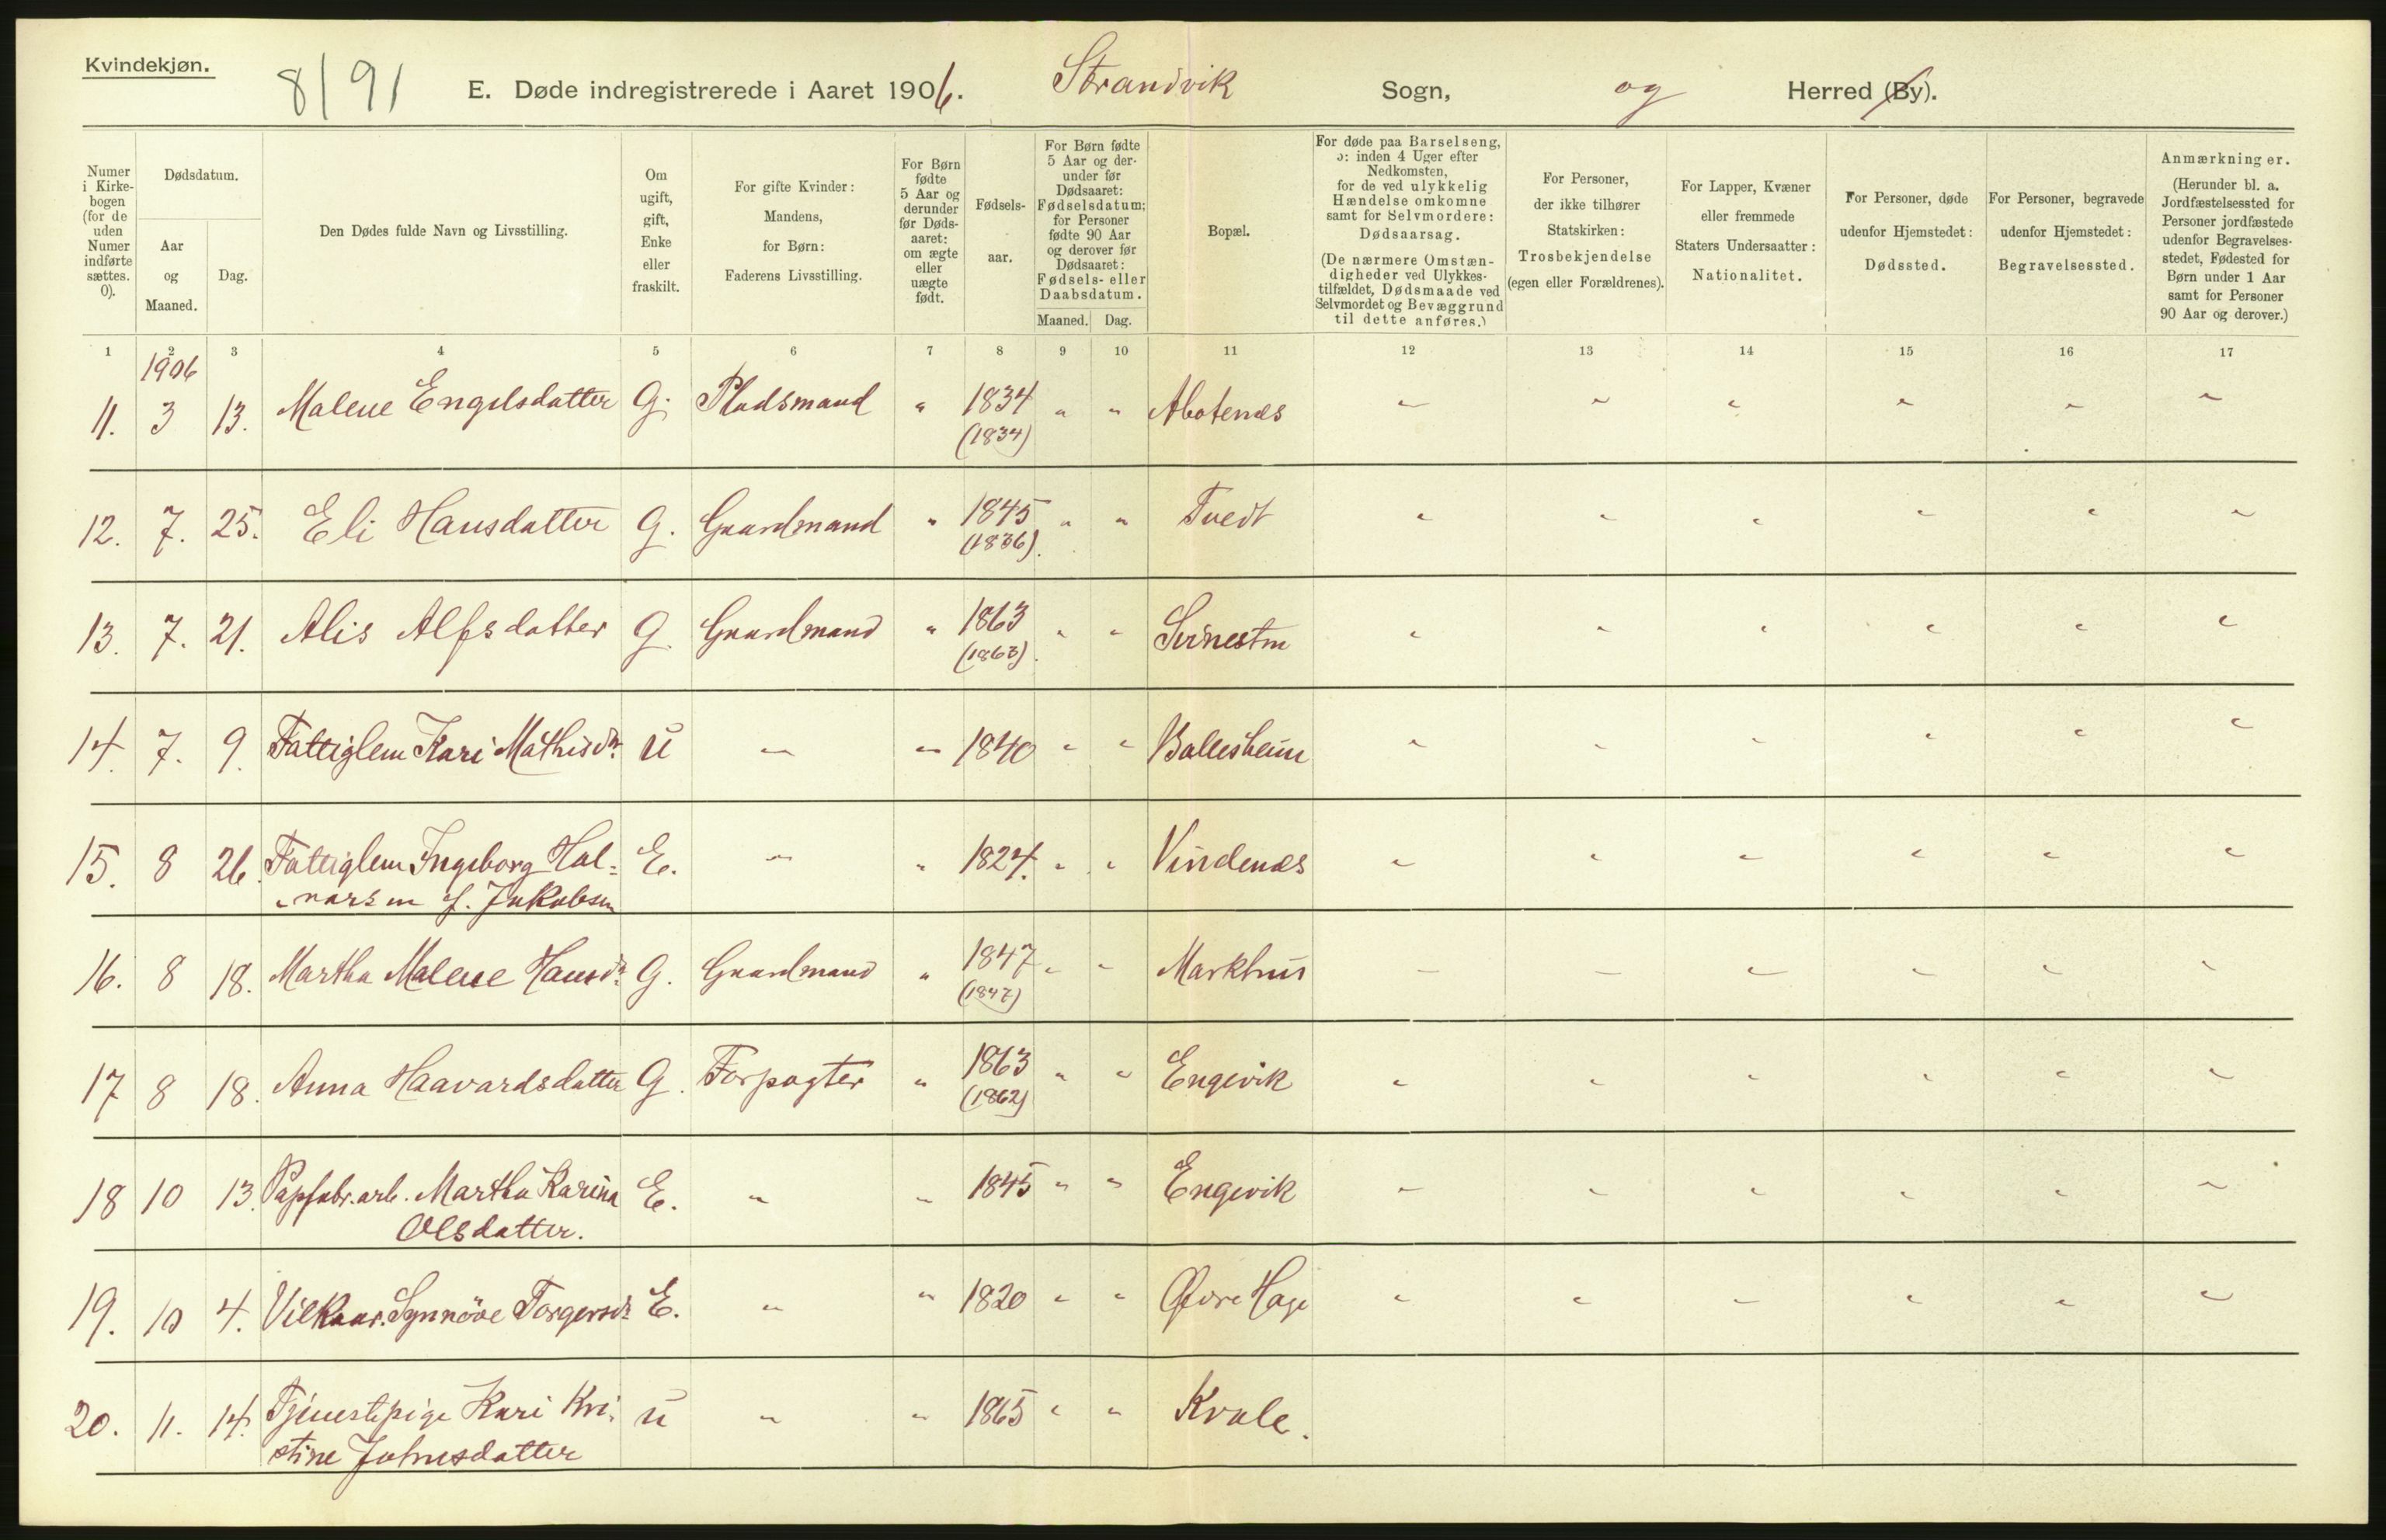 Kvindekjøn.
8/91
E. Døde indregistrerede i Aaret 1906. Strandvik Sogn, og Herred (By).
Numer i Kirke-bogen (for de uden Numer indførte sættes. 0).
Dødsdatum.
Aar og Maaned.
Dag.
Den Dødes fulde Navn og Livsstilling.
Om ugift, gift, Enke eller fraskilt.
For gifte Kvinder: Mandens, for Børn: Faderens Livsstilling.
For Børn fødte 5 Aar og derunder før Døds-aaret: om ægte eller uægte født.
Fødsels-aar.
For Børn fødte 5 Aar og der-under før Dødsaaret: Fødselsdatum; for Personer fødte 90 Aar og derover før Dødsaaret: Fødsels- eller Daabsdatum.
Maaned. Dag.
Bopæl.
For døde paa Barselseng, ɔ: inden 4 Uger efter Nedkomsten, for de ved ulykkelig Hændelse omkomne samt for Selvmordere: Dødsaarsag.
(De nærmere Omstæn-digheder ved Ulykkes-tilfældet, Dødsmaade ved Selvmordet og Bevæggrund til dette anføres.)
For Personer, der ikke tilhører Statskirken: Trosbekjendelse (egen eller Forældrenes).
For Lapper, Kvæner eller fremmede Staters Undersaatter: Nationalitet.
For Personer, døde udenfor Hjemstedet: Dødssted.
For Personer, begravede udenfor Hjemstedet: Begravelsessted.
Anmærkninger.
(Herunder bl. a. Jordfæstelsessted for Personer jordfæstede udenfor Begravelses-stedet, Fødested for Børn under 1 Aar samt for Personer 90 Aar og derover.)
1 2 3 4 5 6 7 8 9 10 11 12 13 14 15 16 17
1906
11. 3 13. Malene Engelsdatter G. Pladsmand " 1834 " " " " " " " "
(1834)
12. 7. 25. Eli Hansdatter G. Gaardmand " 1845 " " Tvedt " " " " " "
(1836).
13. 7. 21. Alis Alfsdatter G. Gaardmand " 1863 " " " " " " " "
(1863).
14. 7. 9. Fattiglem Kari Mathisdr. u " " 1840 " " Ballesheim " " " " " "
15. 8 26. Fattiglem Ingeborg Hal= E. " " 1824. " " Vindenæs " " " " " "
f. Jakobsen
16. 8 18. Martha Malene Hansdr. G. Gaardmand " 1847 " " Markhus " " " " " "
(1847)
17 8 18. Anna Haavardsdatter G. Forpagter " 1863 " " Engevik " " " " " "
(1862)
18 10 13. Papfabr.arb. Martha Karina E. " " 1845 " " Engevik " " " " " "
Olsdatter.
19. 10 4. Vilkaar. Synnöve Torgersdr. E. " " 1820 " " Øvre Hage " " " " " "
20. 11. 14. Tjenestepige Kari Kri- u " " 1865 " " Kvale.
stine Johnsdatter